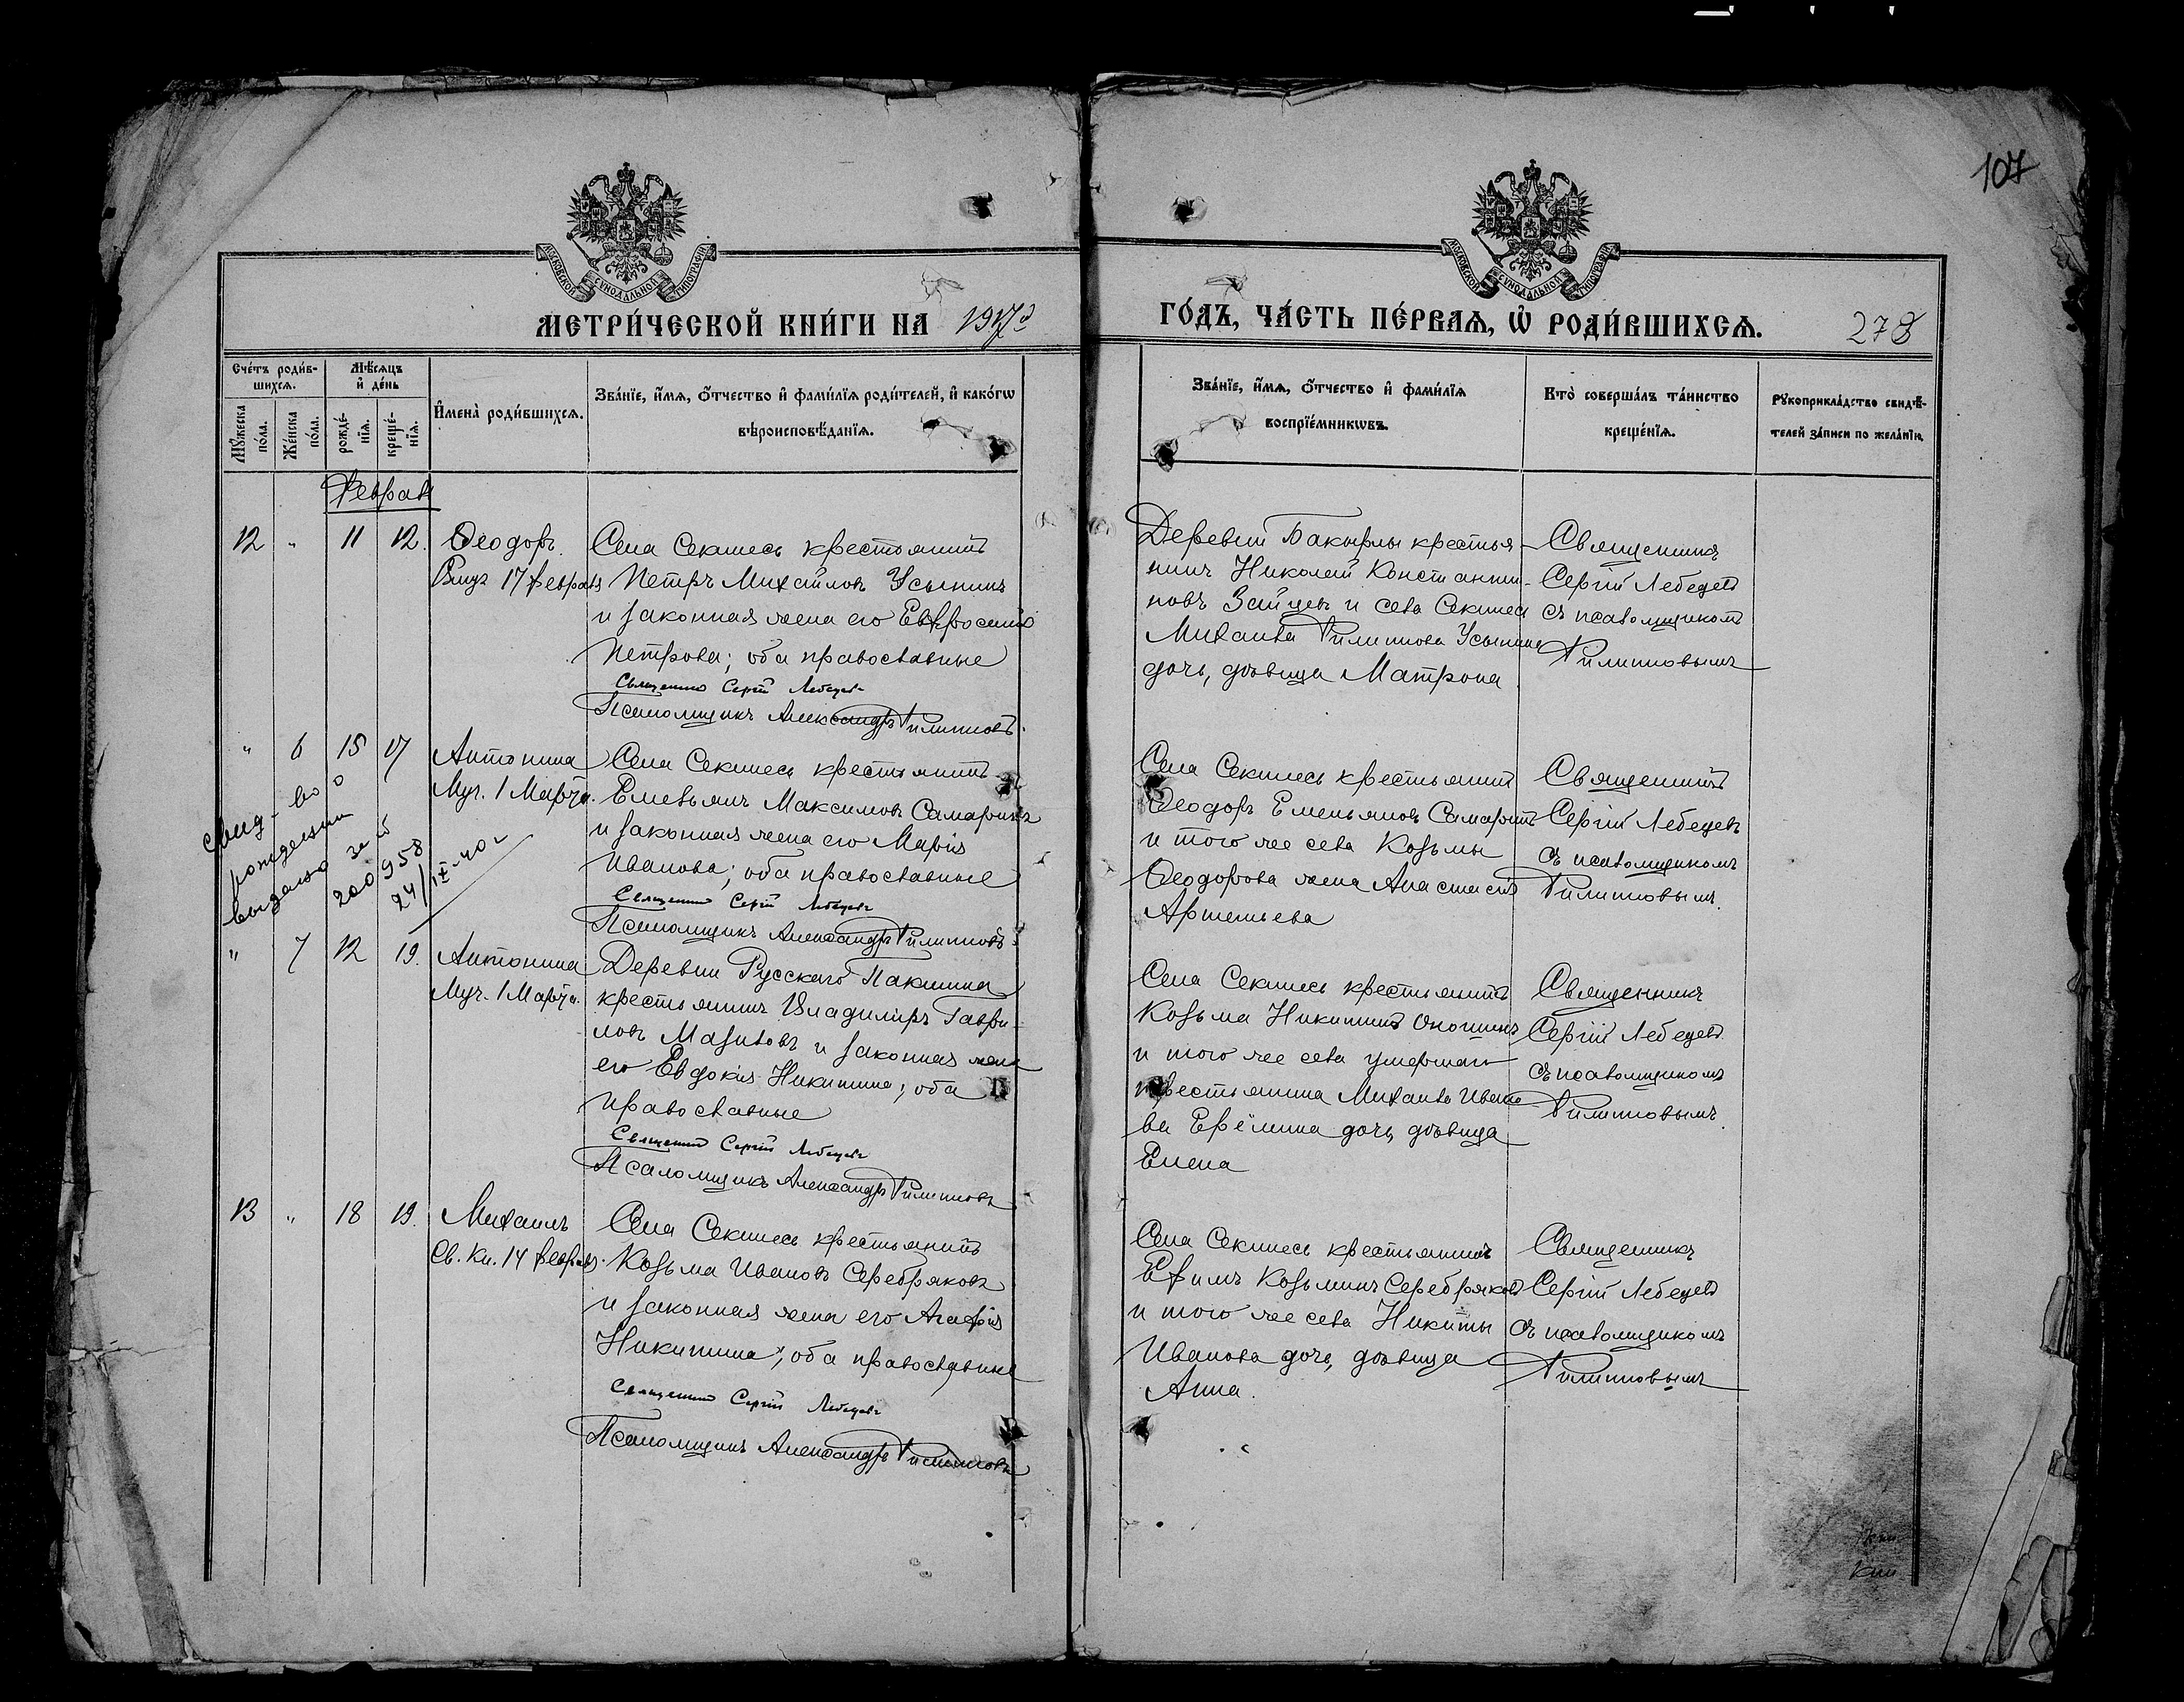 107
МОСКОВСКОЙ СѴНОДАЛЬНОЙ ТИПОГРАФІИ
МОСКОВСКОЙ СѴНОДАЛЬНОЙ ТИПОГРАФІИ
МЕТРИ́ЧЕСКОЙ КНИ́ГИ НА 1917й
ГО́ДЪ, ЧА́СТЬ ПЕ́РВАѦ, Ѽ РОДИ́ВШИХСѦ.
278
Сче́тъ роди́в-
шихсѧ.
Мѣ́сѧцъ
и҆ де́нь
Мꙋ́жеска
по́ла.
Же́нска
по́ла.
рожде́-
нїѧ.
креще́-
нїѧ.
И҆мена̀ роди́вшихсѧ.
Зва́нїе, и҆́мѧ, ѻ҆́тчество и҆ фами́лїѧ роди́телей, и҆ како́гѡ
вѣроисповѣ́данїѧ.
Зва́нїе, и҆́мѧ, ѻ҆́тчество и҆ фами́лїѧ
воспрїе́мникѡвъ.
Кто̀ соверша́лъ та́инство
креще́нїѧ.
Рꙋкоприкла́дство свидѣ́-
телей за́писи по жела́нїю.
Февраль
12 „ 11 12. Ѳеодоръ.
17 февраля
Села Секинесь крестьянинъ
Петръ Михайловъ Усынинъ
и законная жена его Евфросинія
Петрова; оба православные
Священникъ Сергій Лебедевъ
Псаломщикъ Александръ Филипповъ.
Деревни Бакырлы крестья-
нинъ Николай Константи-
новъ Зайцевъ и села Секинесь
Михаила Филиппова Усынина
дочь, дѣвица Матрона
Священникъ
Сергій Лебедевъ
съ псаломщикомъ
Филипповымъ
„ 6 15 17 Антонина
Муч. 1 Марта.
Села Секинесь крестьянинъ
Емельянъ Максимовъ Самаринъ
и законная жена его Марія
Иванова; оба православные
Священникъ Сергій Лебедевъ
Псаломщикъ Александръ Филипповъ.
Села Секинесь крестьянинъ
Ѳеодоръ Емельяновъ Самаринъ
и того же села Козьмы
Ѳеодорова жена Анастасія
Артемьева
Священникъ
Сергій Лебедевъ
съ псаломщикомъ
Филипповымъ.
Свид-во о
рождении
выдано за №
200958
24/IX-40 г
„ 7 12 19. Антонина
Муч. 1 Марта.
Деревни Русскаго Пакшина
крестьянинъ Владиміръ Гаври-
ловъ Мазиловъ и законная жена
его Евдокія Никитина; оба
православные
Священникъ Сергій Лебедевъ
Псаломщикъ Александръ Филипповъ
Села Секинесь крестьянинъ
Козьма Никитинъ
и того же села умершаго
крестьянина Михаила Ивано-
ва Ерёмина дочь, дѣвица
Елена
Священникъ
Сергій Лебедевъ
съ псаломщикомъ
Филипповымъ.
13 „ 18 19. Михаилъ
Св. Кн. 14 февраля.
Села Секинесь крестьянинъ
Козьма Ивановъ Серебряковъ
и законная жена его Агафія
Никитина; оба православные
Священникъ Сергій Лебедевъ
Псаломщикъ Александръ Филипповъ
Села Секинесь крестьянинъ
Ефимъ Козьминъ Серебряковъ
и того же села Никиты
Иванова дочь, дѣвица
Анна.
Священникъ
Сергій Лебедевъ
съ псаломщикомъ
Филипповымъ